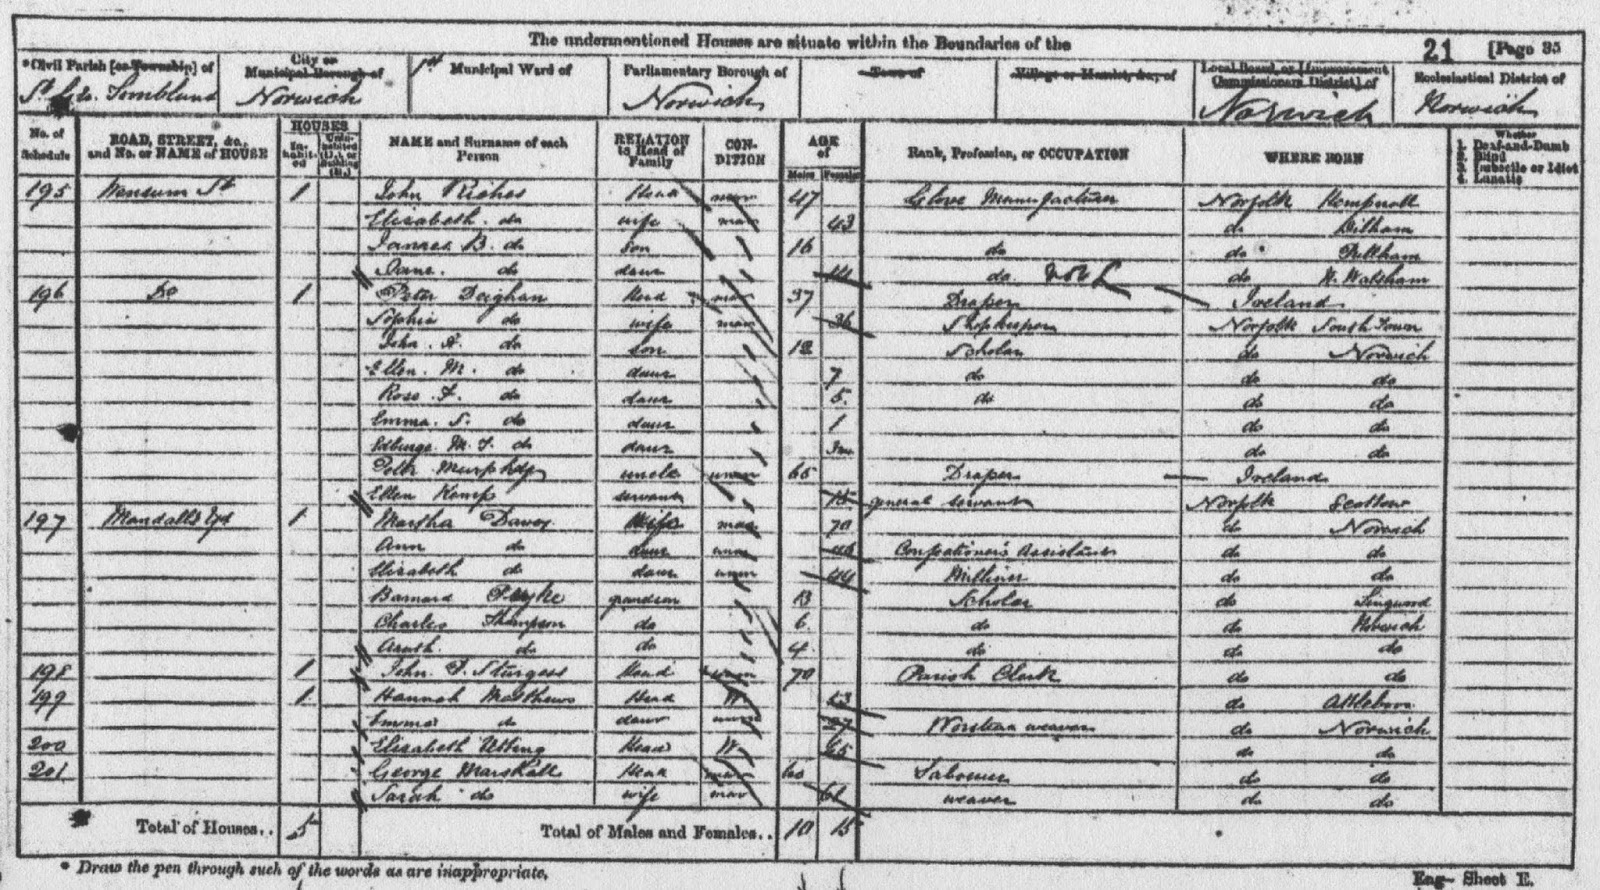 The undermentioned Houses are situate within the Boundaries of the 21 [Page 35
*Civil Parish [or Township] of City or Municipal Borough of Municipal Ward of Parliamentary Borough of Town of Village or Hamlet, &c., of Local Board, or [Improvement Commissioners District] of Ecclesiastical District of
St. Geo. Tombland Norwich Norwich Norwich Norwich
No. of Schedule ROAD, STREET, &c., and No. or NAME of HOUSE HOUSES Inhabited Uninhabited (U.), or Building (B.) NAME and Surname of each Person RELATION to Head of Family CONDITION AGE of Males Females Rank, Profession, or OCCUPATION WHERE BORN Whether 1. Deaf-and-Dumb 2. Blind 3. Imbecile or Idiot 4. Lunatic
195 Wensum St 1 John Riches Head mar 47 Glove Manufacturer Norfolk Hempnall
Elizabeth do wife mar 43 do Dilham
James B. do Son 16 do do
Jane do daur 14 do do N. Walsham
196 Do 1 Peter Deighan Head mar 37 Draper Ireland
Sophia do wife mar 36 Shopkeeper Norfolk South Town
John A. do son 12 Scholar do Norwich
Ellen M. do daur 7 do do do
Rose F. do daur 5 do do do
Emma S. do daur 1 do do
M. F. do daur 3m do do
Murphy uncle unm 65 Draper Ireland
Ellen Kemp servant 15 general servant Norfolk Scottow
197 1 Martha Davey Wife mar 70 do Norwich
Ann do daur unm 46 Confectioner's Assistant do do
Elizabeth do daur unm 44 Milliner do do
Barnard grandson 13 Scholar do Lingwood
Charles Thompson do 6 do do Norwich
do do 4 do do do
198 1 John F. Sturgess Head 70 Parish Clerk do do
199 1 Hannah Matthews Head W 53 do Attleboro
Emma do daur unm 27 Worsted weaver do Norwich
200 Elizabeth Utting Head W 65 do do
201 George Marshall Head mar 60 Labourer do do
Sarah do wife mar 61 weaver do do
Total of Houses.. 5 Total of Males and Females.. 10 15
* Draw the pen through such of the words as are inappropriate. Eng— Sheet E.